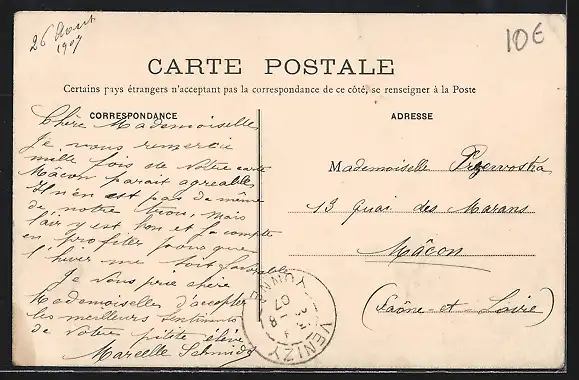 26 Aout
1907
10€
CARTE POSTALE
Certains pays étrangers n'acceptant pas la correspondance de ce côté, se renseigner à la Poste
CORRESPONDANCE
Chère Mademoiselle
Je vous remercie
mille fois de votre carte
Mâcon parait agreable
Il n'en est pas de même
de notre trou, mais
l'air y est bon et je compte
en profiter pour que
l'hiver me soit favorable
Je vous prie chère
Mademoiselle d'accepter
les meilleurs sentiments
de votre petite élève
Marcelle Schmidt
ADRESSE
Mademoiselle
13 Quai des Marans
Mâcon
(Saône et Loire)
VENIZY
YONNE
07